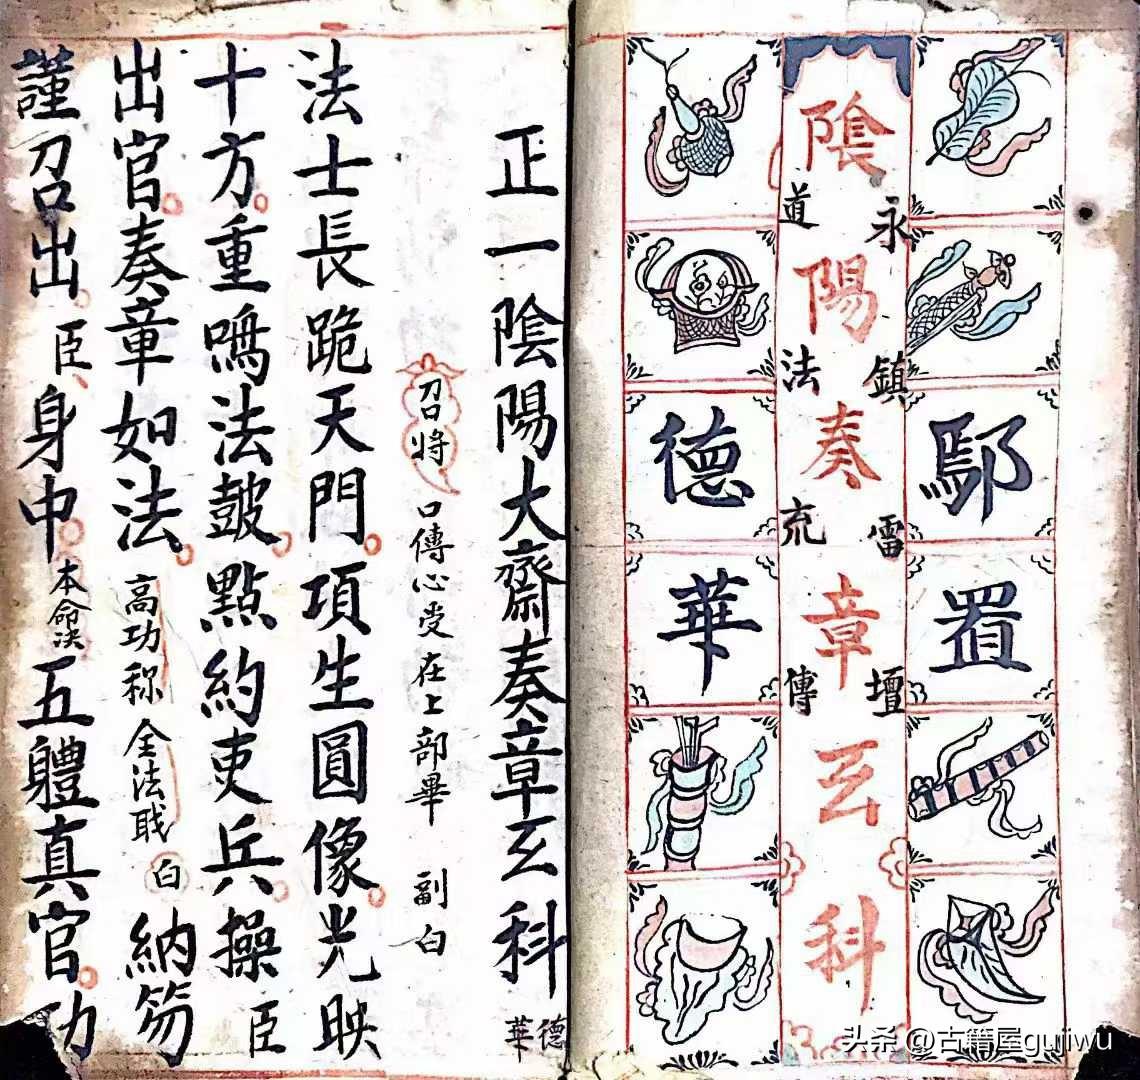 鄢置
永鎮雷壇
隂陽奏章玄科
道法充傳
德華
正一隂陽大齋奏章玄科 德華
召将 口傳心受在上部畢 副白
法士長跪天門項生圓像光映
十方重鳴法皷點約吏兵操臣
出官奏章如法 高功称全法职 白 納笏
謹召出臣身中本命决五體真官功
头条 @古籍屋gujiwu